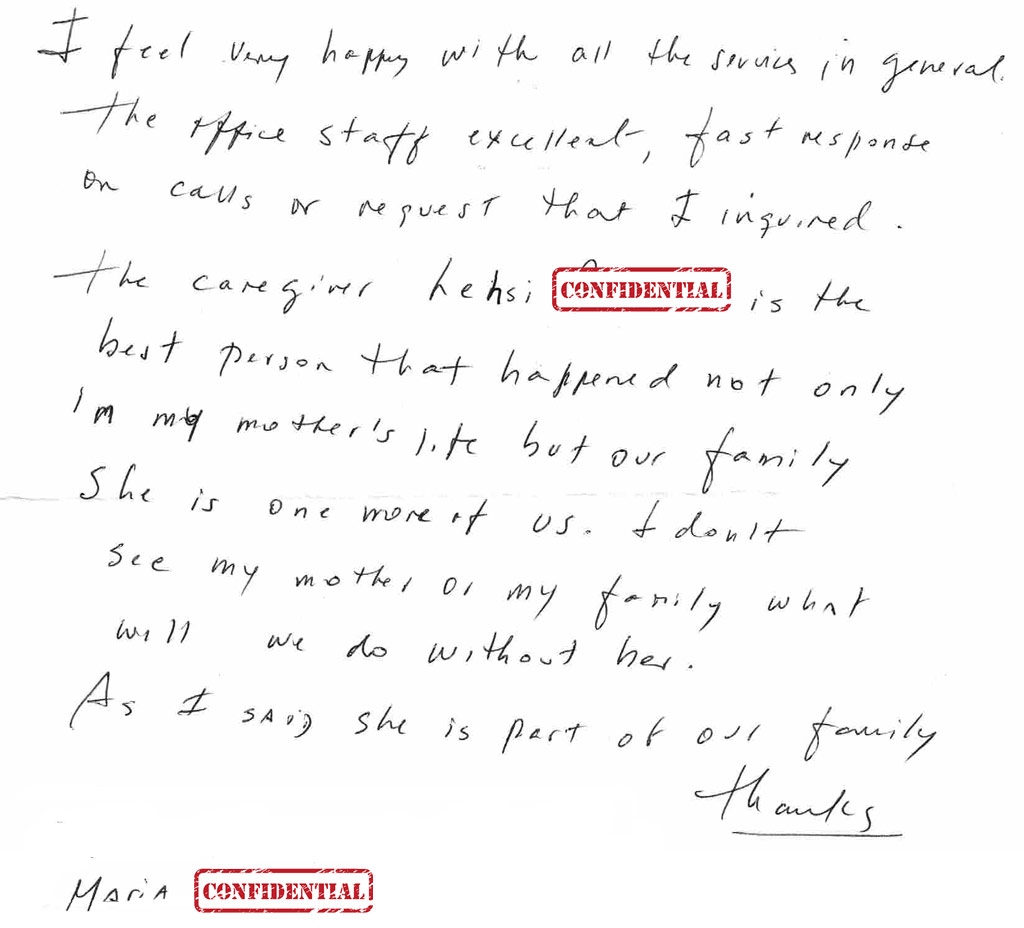 I feel very happy with all the services in general.
The office staff excellent, fast response
on calls or request that I inquired.
The caregiver CONFIDENTIAL is the
best person that happened not only
in my mother's life but our family
She is one more of us. I don't
see my mother or my family what
will we do without her.
As I said she is part of our family
thanks
Maria CONFIDENTIAL